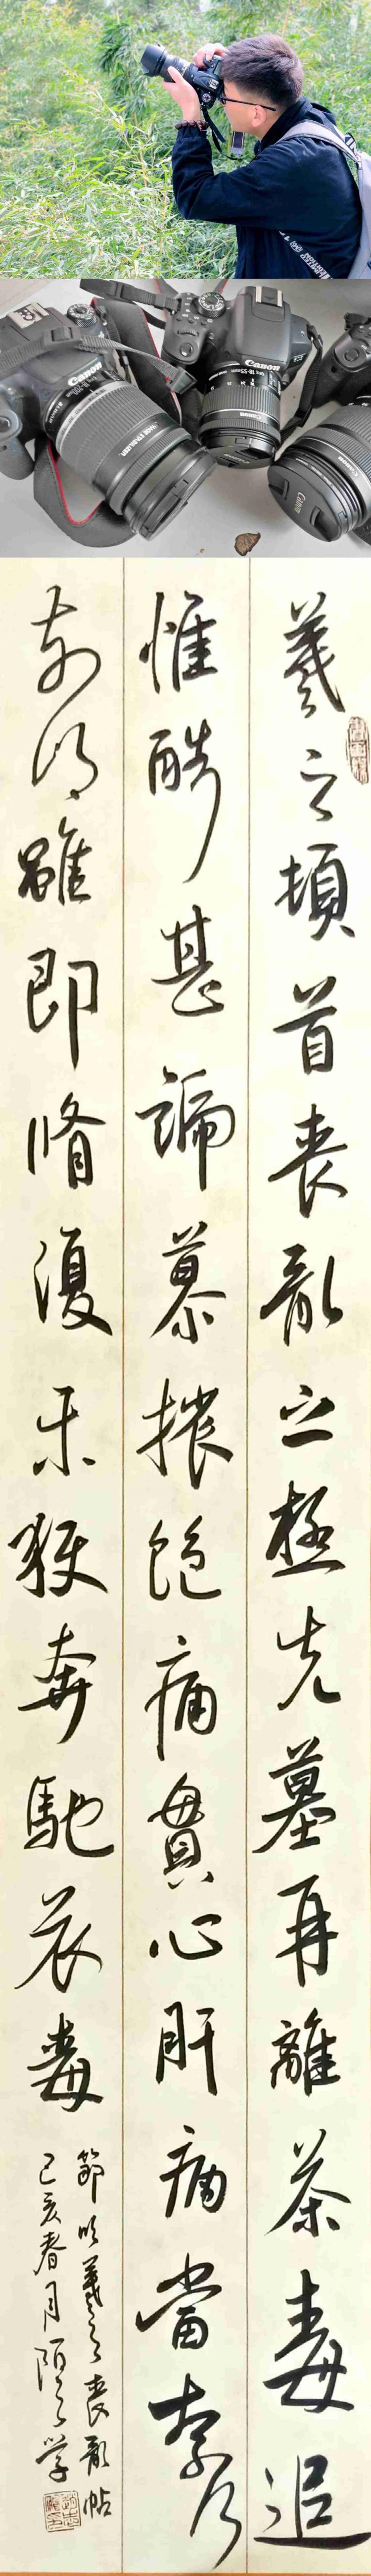 Canon
IMAGE STABILIZER
Canon
EFS 18-55mm
Canon
Canon
羲之頓首喪亂之極先墓再離荼毒追
惟酷甚號慕摧絕痛貫心肝痛當奈何
奈何雖即脩復未獲奔馳哀毒
節臨羲之喪亂帖
己亥春月